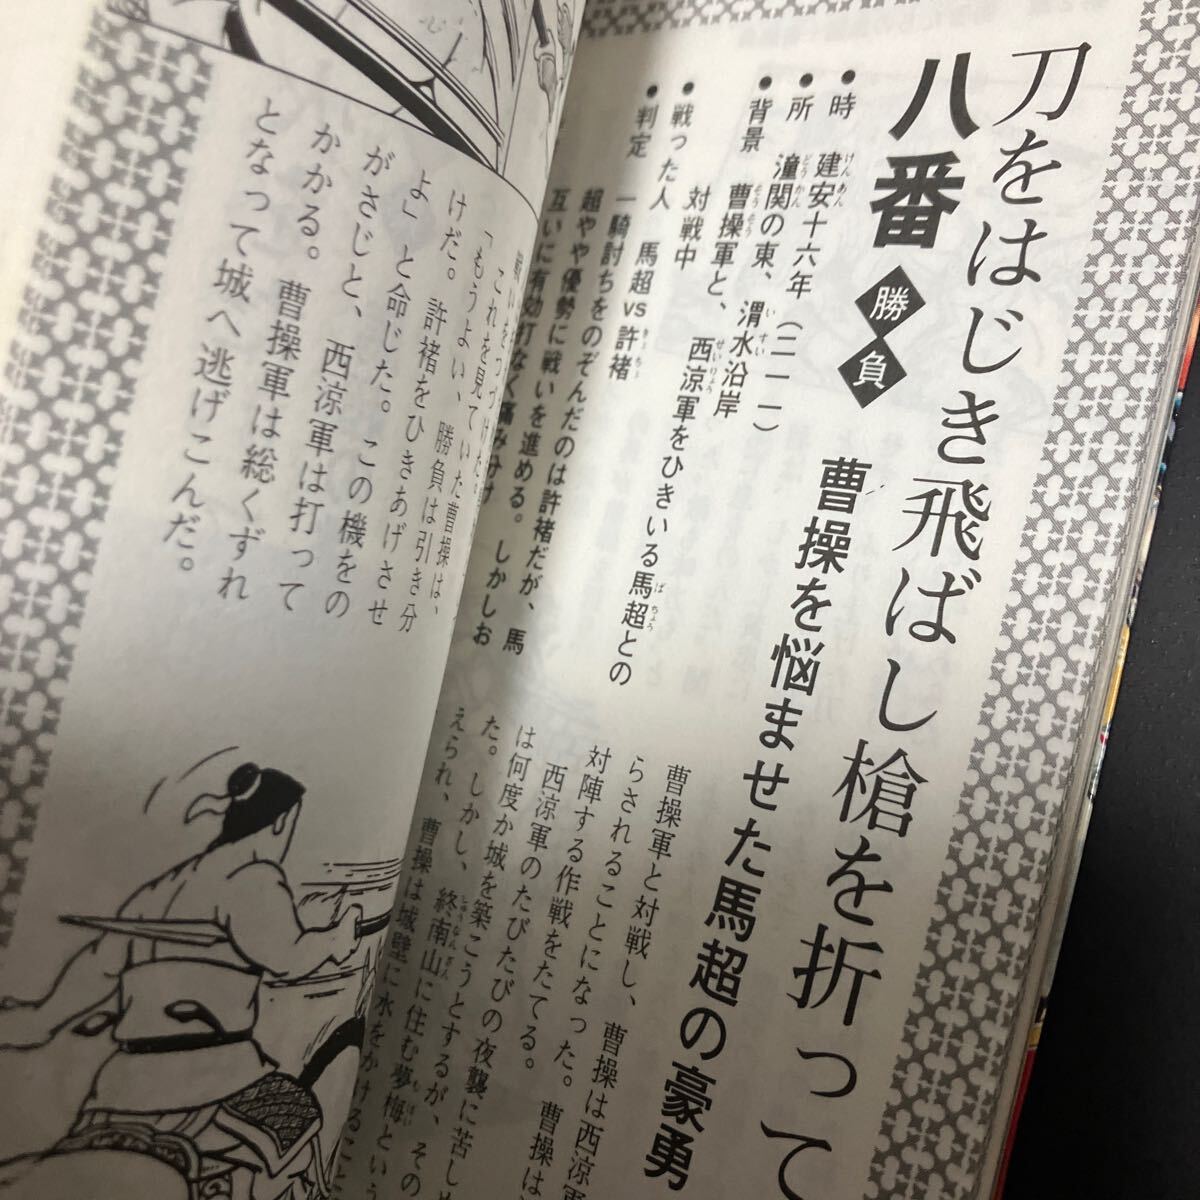 刀をはじき飛ばし槍を折って
八番 勝負
曹操を悩ませた馬超の豪勇
●時 建安十六年(二一一)
●所 潼関の東、渭水沿岸
●背景 曹操軍と、西涼軍をひきいる馬超との
対戦中
●戦った人 馬超vs許褚
●判定 一騎討ちをのぞんだのは許褚だが、馬
超やや優勢に戦いを進める。しかしお
互いに有効打なく痛み分け
曹操軍と対戦し、曹操は西涼軍
らされることになった。
対陣する作戦をたてる。曹操は
西涼軍のたびたびの夜襲に苦しめ
は何度か城を築こうとするが、その
た。しかし、終南山に住む夢梅という
えられ、曹操は城壁に水をかけること
これを見ていた曹操は、
「もうよい、勝負は引き分
けだ。許褚をひきあげさせ
よ」と命じた。この機をの
がさじと、西涼軍は打って
かかる。曹操軍は総くずれ
となって城へ逃げこんだ。